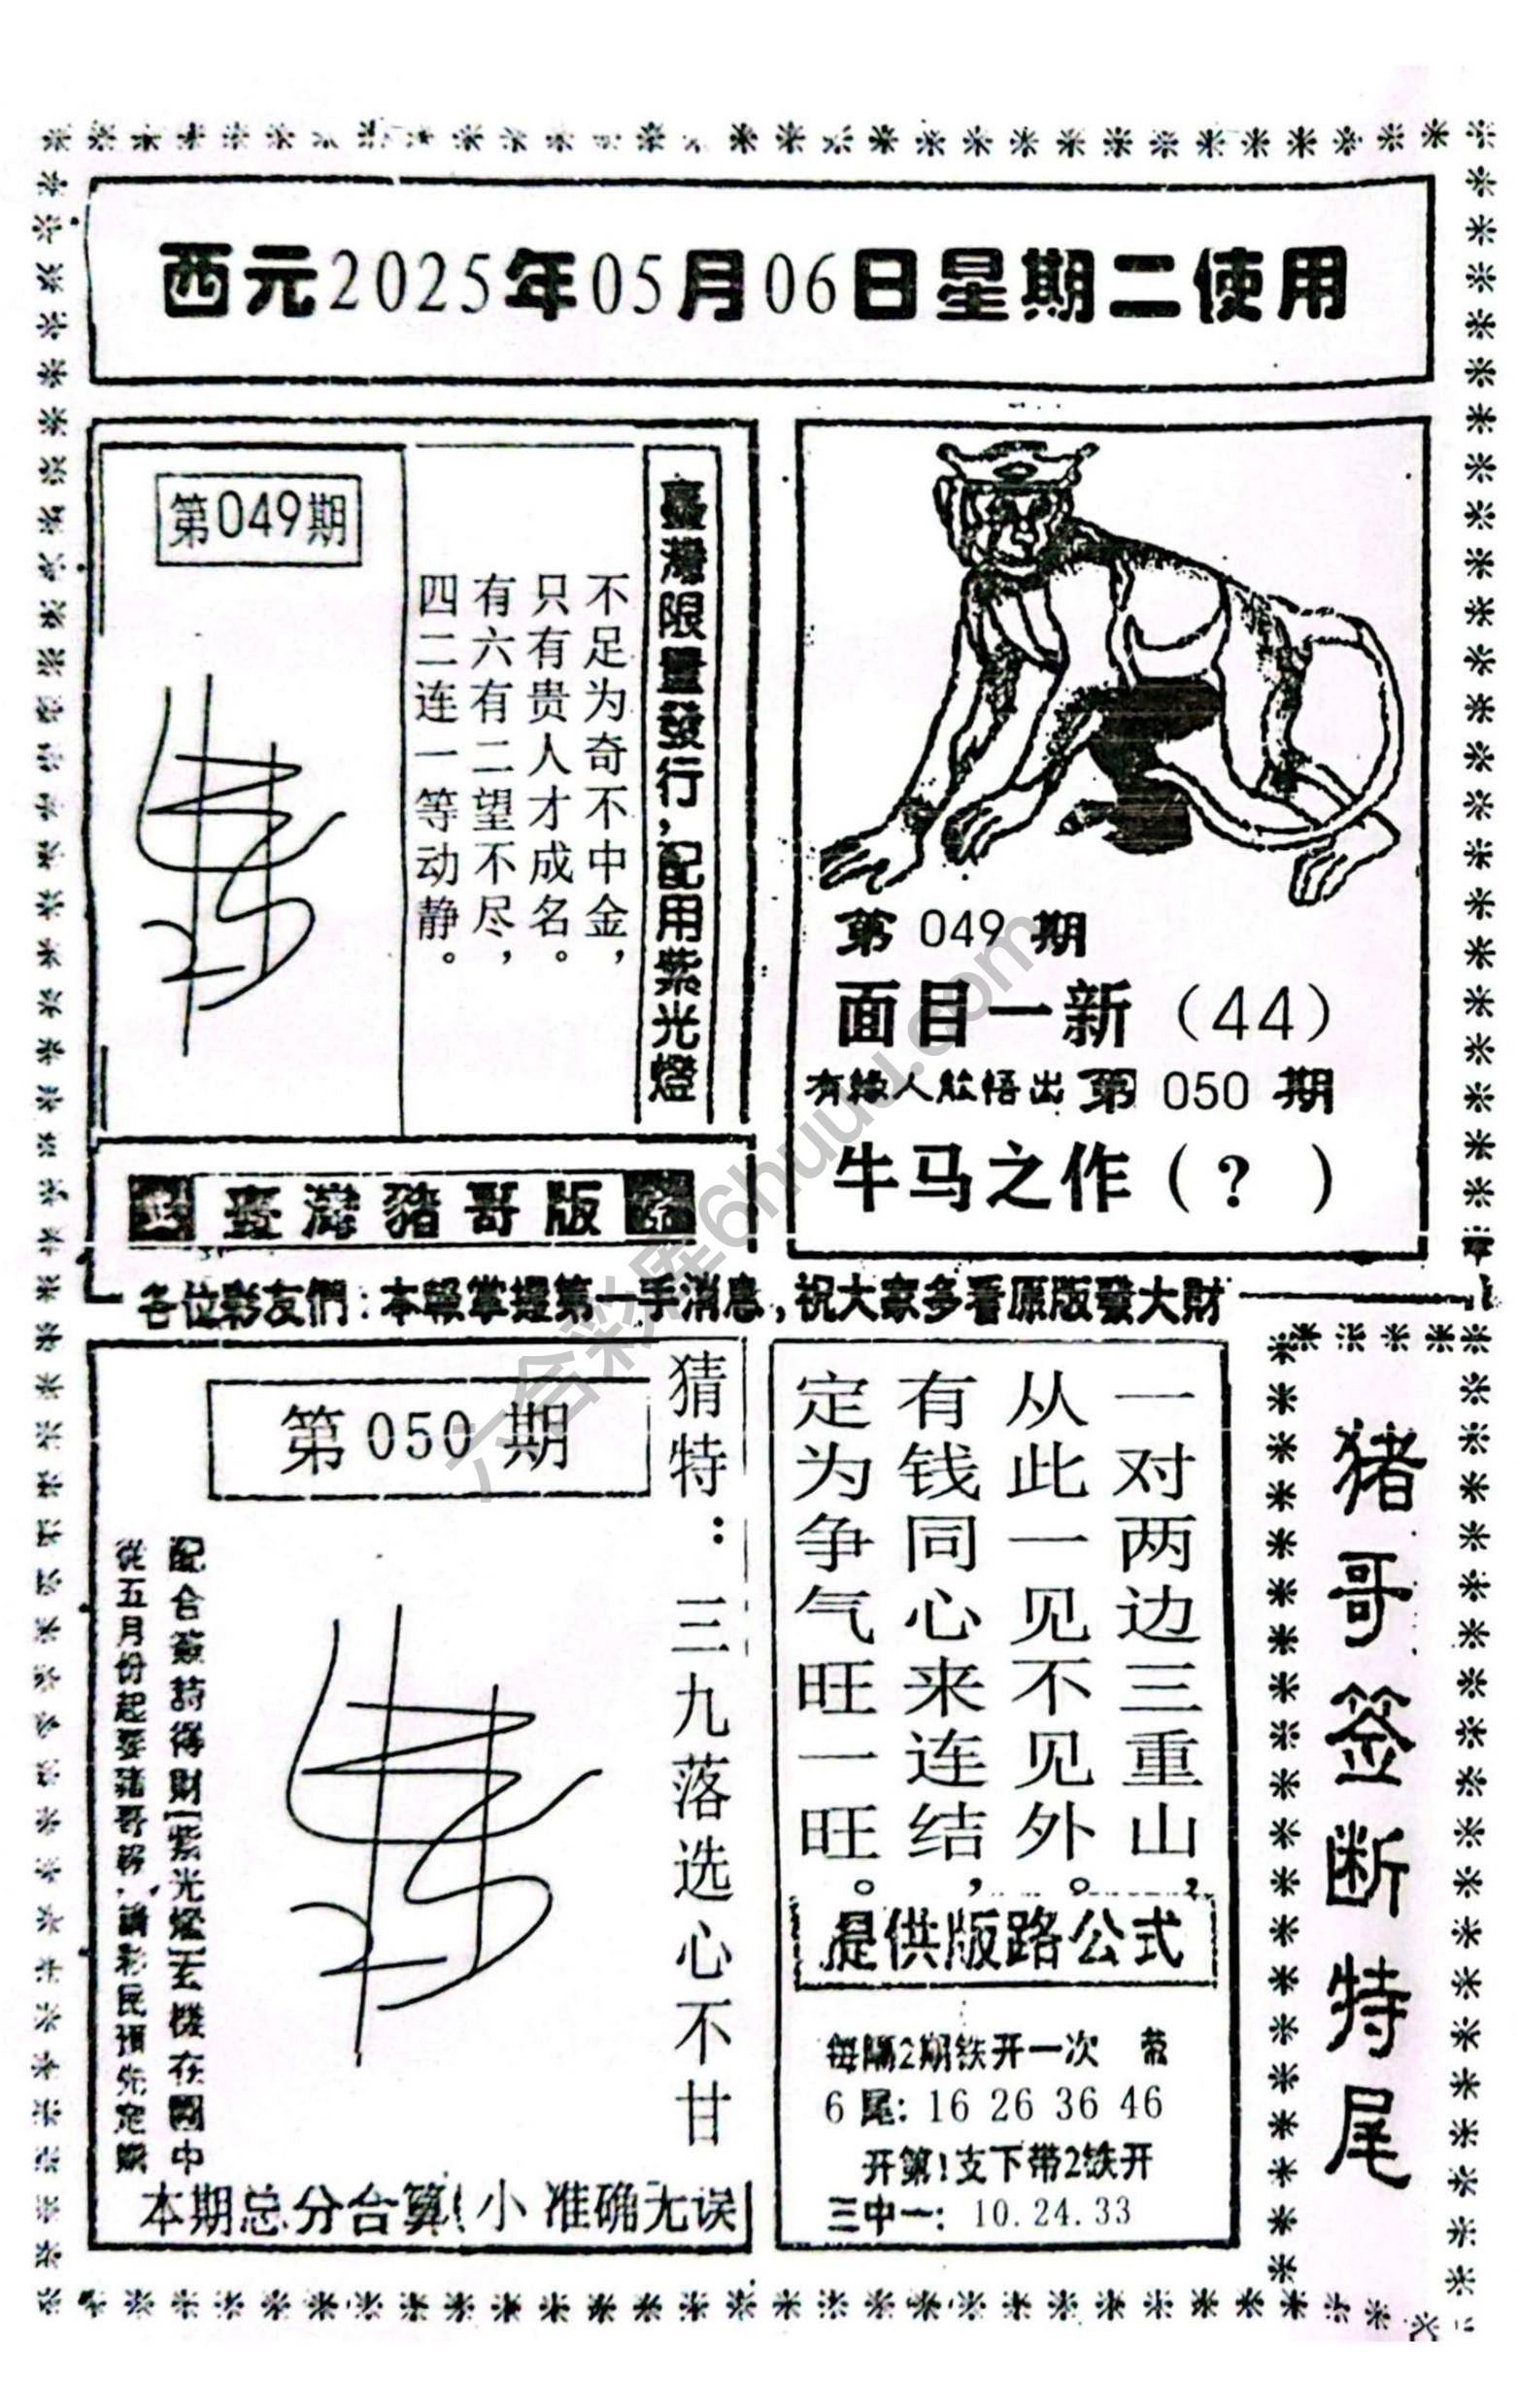 西元2025年05月06日星期二使用
第049期
臺灣限量發行,配用紫光燈
不足为奇不中金,
只有贵人才成名。
有六有二望不尽,
四二连一等动静。
臺灣豬哥版
第 049 期
面目一新（44）
有緣人能悟出 第 050 期
牛马之作（?）
各位彩友們:本報掌握第一手消息,祝大家多看原版發大財
第050期
猜特：三九落选心不甘
配合簽詩得財[紫光燈]玄機在圖中
從五月份起要豬哥報,請彩民預先定購
本期总分合算(小 准确无误
一对两边三重山,
从此一见不见外。
有钱同心来连结,
定为争气旺一旺。
提供版路公式
每隔2期铁开一次 带
6尾: 16 26 36 46
开第1支下带2铁开
三中一: 10.24.33
猪哥签断特尾
六合彩库6huuu.com